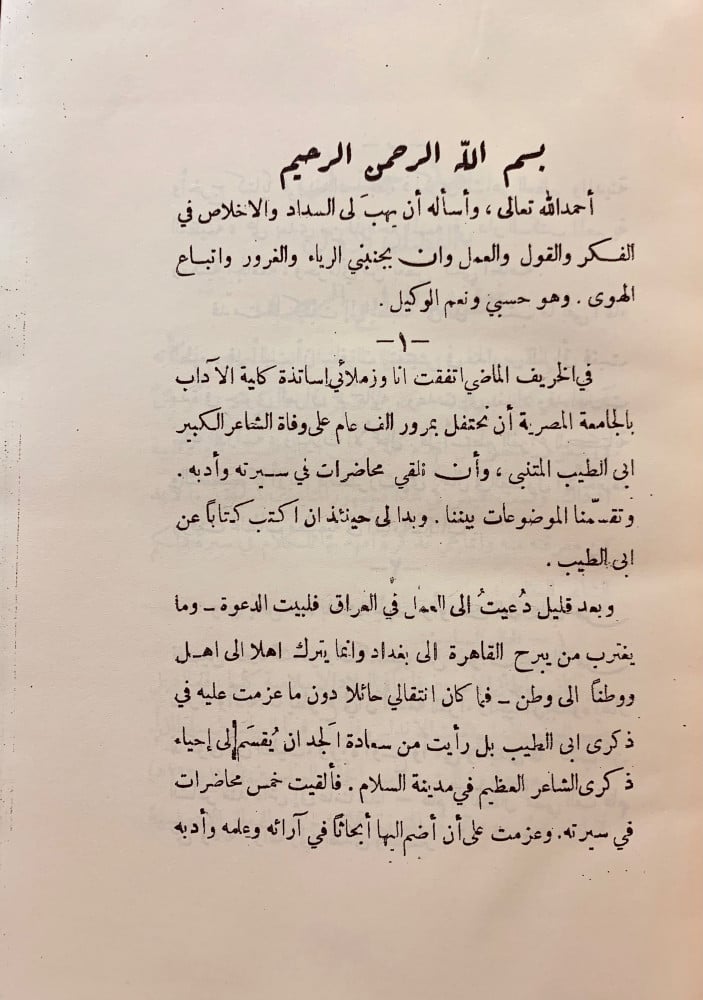 بسم الله الرحمن الرحيم
أحمد الله تعالى ، وأسأله أن يهبَ لى السداد والاخلاص في
الفكر والقول والعمل وان يجنبني الرياء والغرور واتباع
الهوى . وهو حسبي ونعم الوكيل .
— ١ —
في الخريف الماضي اتفقت انا وزملائي اساتذة كلية الآداب
بالجامعة المصرية أن نحتفل بمرور الف عام على وفاة الشاعر الكبير
ابى الطيب المتنبى ، وأن نلقي محاضرات في سيرته وأدبه .
وتقسّمنا الموضوعات بيننا . وبدا لى حينئذ ان اكتب كتاباً عن
ابى الطيب .
وبعد قليل دُعيتُ الى العمل في العراق فلبيت الدعوة – وما
يغترب من يبرح القاهرة الى بغداد وانما يترك اهلا الى اهل
ووطناً الى وطن – فما كان انتقالي حائلا دون ما عزمت عليه في
ذكرى ابى الطيب بل رأيت من سعادة الجد ان يُقسَم لى إحياء
ذكرى الشاعر العظيم في مدينة السلام . فألقيت خمس محاضرات
في سيرته. وعزمت على أن أضم اليها أبحاثاً في آرائه وعلمه وأدبه